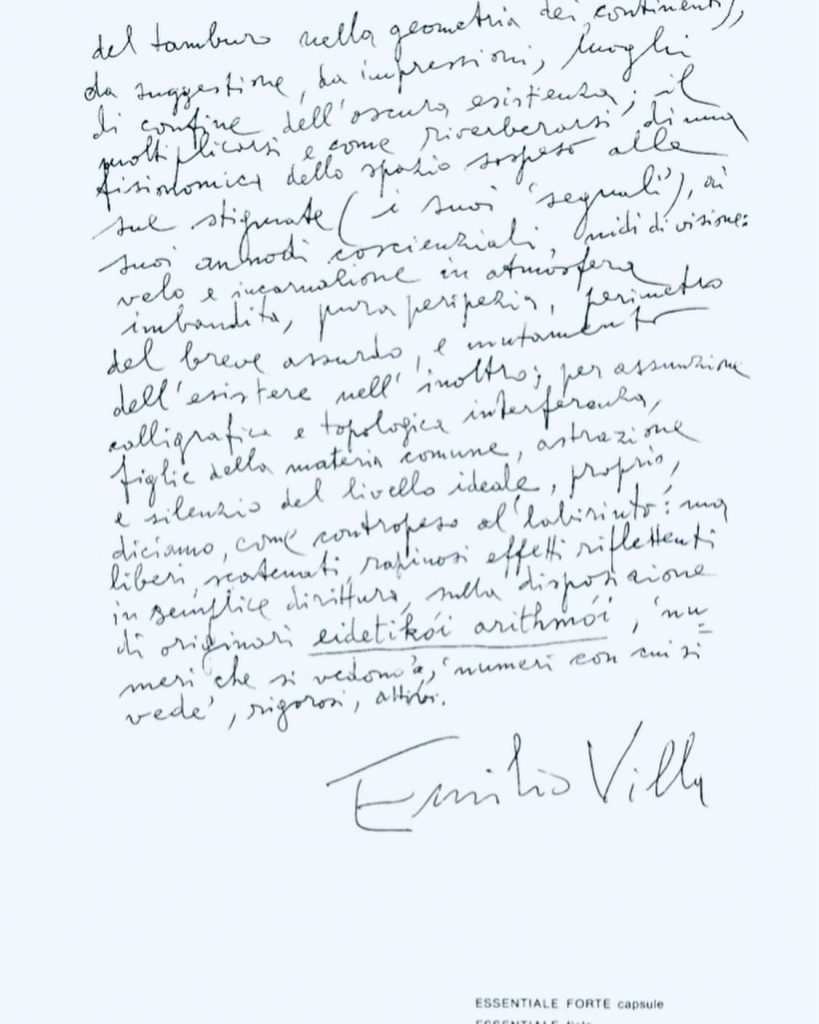 del tamburo nella geometria dei continenti),
da suggestione, da impressioni, luoghi
di confine dell'oscura esistenza; il
moltiplicarsi e come riverberarsi di una
fisionomica dello spazio sospeso alle
sue stigmate (i suoi 'segnali'), ai
suoi annodi coscienziali, nidi di visione:
velo e incarnazione in atmosfera
imbandita, pura peripezia, perimetro
del breve assurdo, e mutamento
dell'esistere nell'inoltro; per assunzione
calligrafica e topologica interferenza,
figlie della materia comune, astrazione
e silenzio del livello ideale, proprio,
diciamo, come contropeso al labirinto: ma
liberi, scatenati, rapinosi effetti riflettenti
in semplice dirittura, sulla disposizione
di originari eidetikói arithmói, 'nu=
meri che si vedono', 'numeri con cui si
vede', rigorosi, attivi.
Emilio Villa
ESSENTIALE FORTE capsule